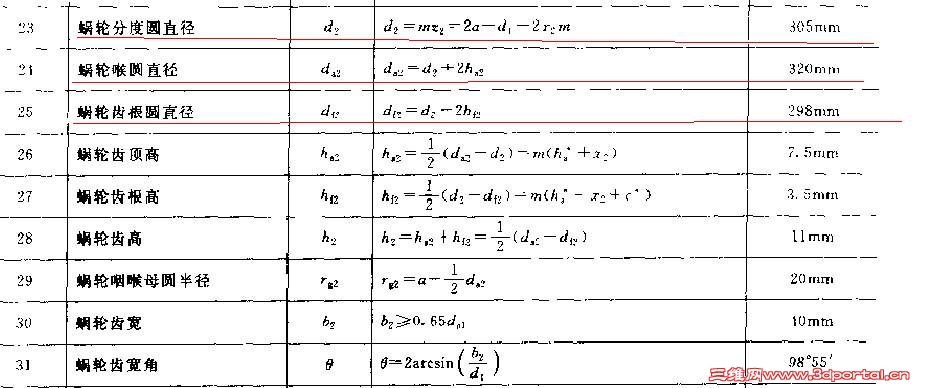 23 蜗轮分度圆直径 d₂ d₂=mz₂=2a-d₁-2x₂m 305mm
24 蜗轮喉圆直径 dₐ₂ dₐ₂=d₂+2hₐ₂ 320mm
25 蜗轮齿根圆直径 d_f2 d_f2=d₂-2h_f2 298mm
26 蜗轮齿顶高 hₐ₂ hₐ₂=1/2(dₐ₂-d₂)=m(hₐ*+x₂) 7.5mm
27 蜗轮齿根高 h_f2 h_f2=1/2(d₂-d_f2)=m(hₐ*-x₂+c*) 3.5mm
28 蜗轮齿高 h₂ h₂=hₐ₂+h_f2=1/2(dₐ₂-d_f2) 11mm
29 蜗轮咽喉母圆半径 r_g2 r_g2=a-1/2dₐ₂ 20mm
30 蜗轮齿宽 b₂ b₂≥0.65dₐ₁ 40mm
31 蜗轮齿宽角 θ θ=2arcsin(b₂/d₁) 98°55′
三维网www.3dportal.cn